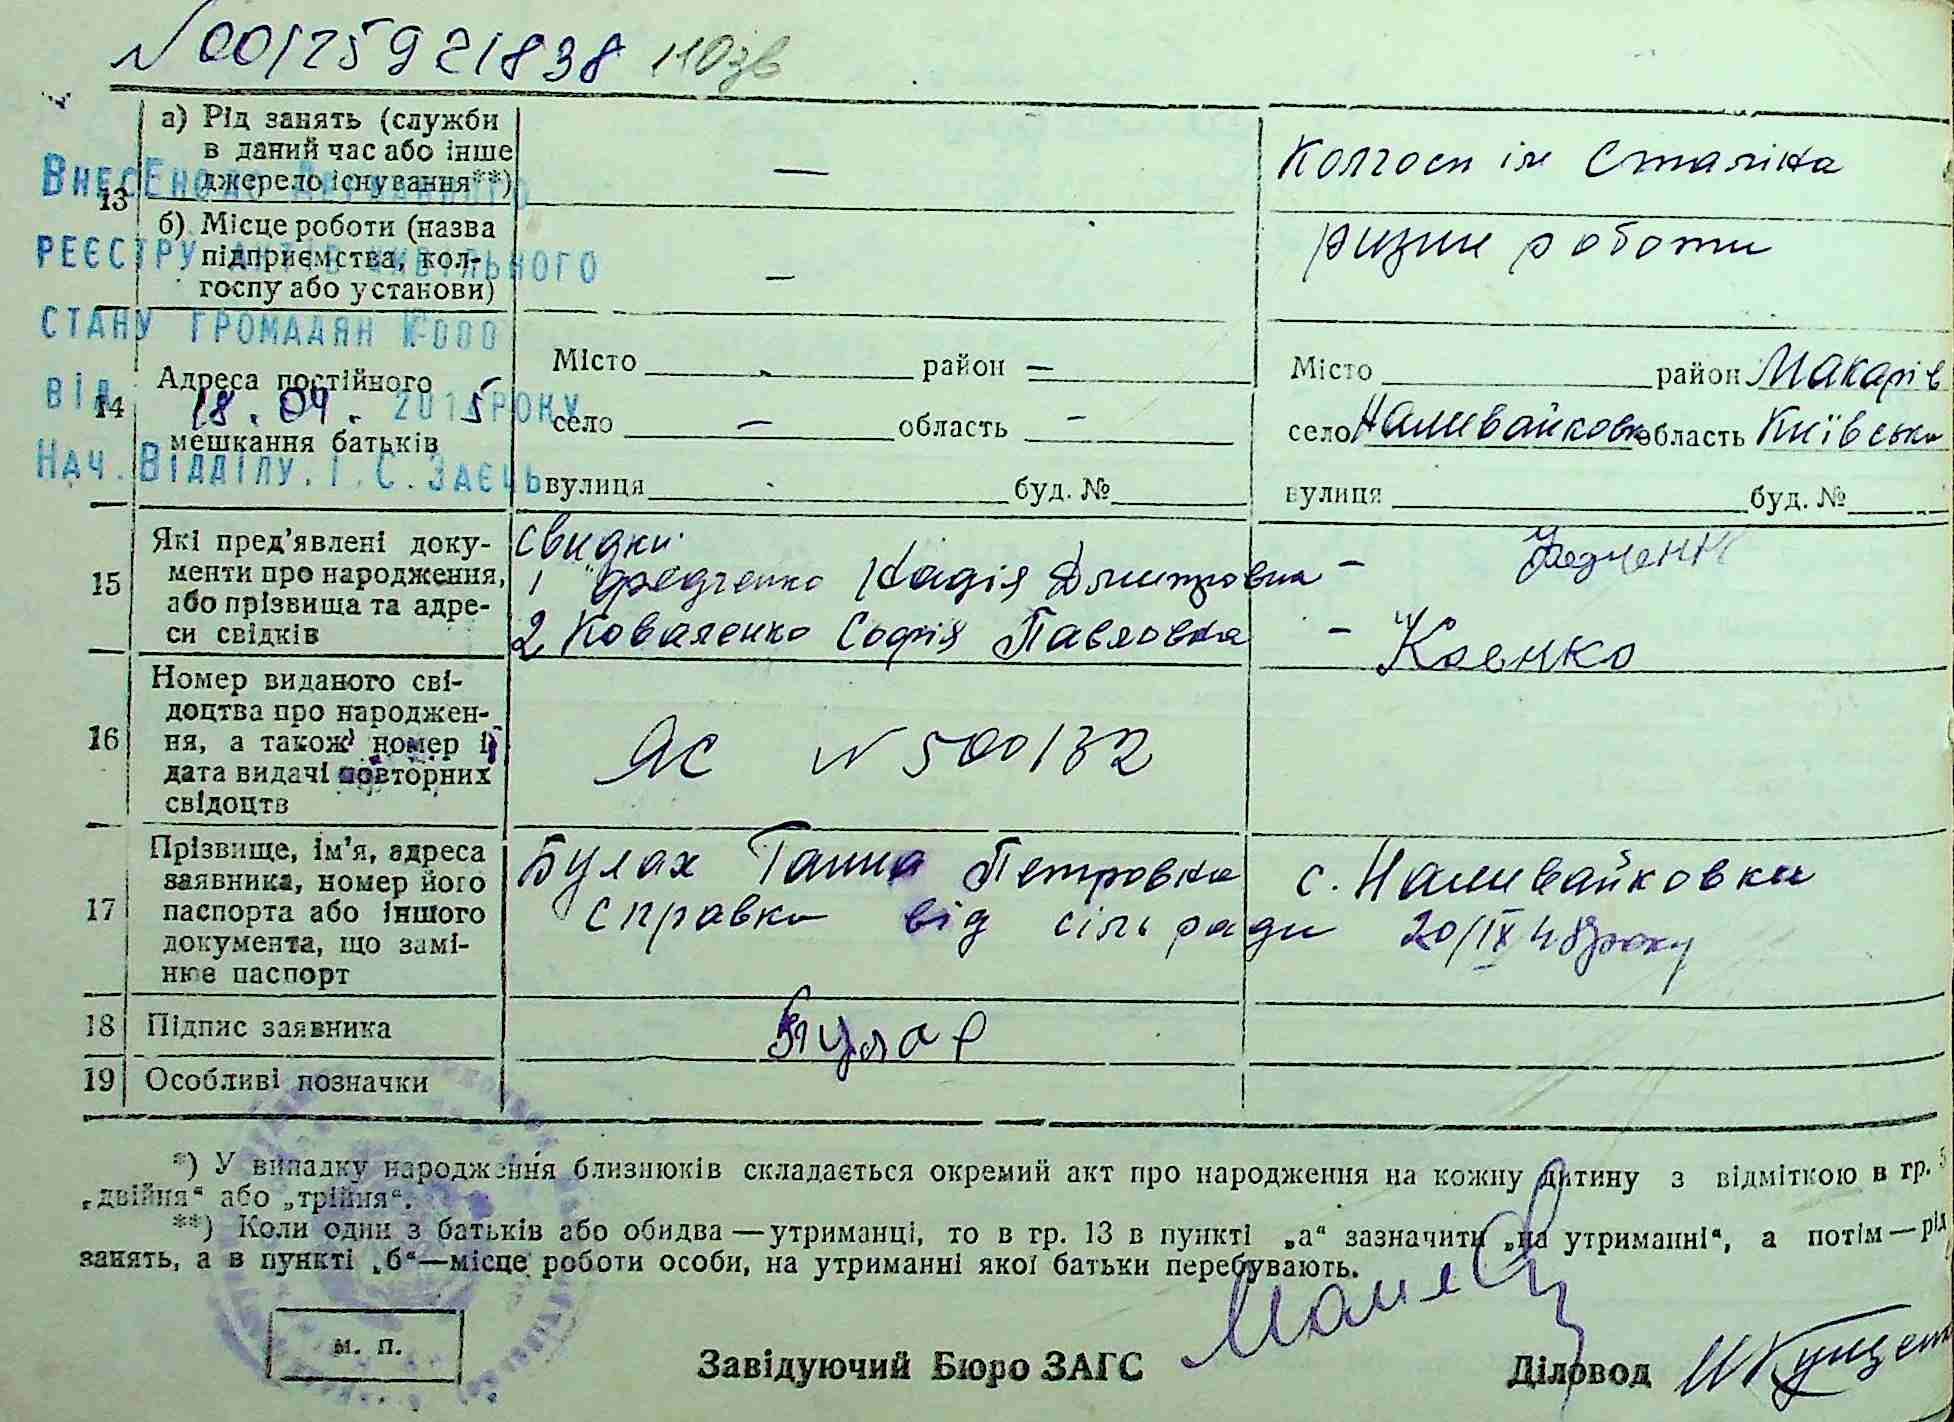 N 00125921838
а) Рід занять (служби
в даний час або інше
джерело існування**)
—
Колгосп ім Сталіна
13
б) Місце роботи (назва
підприємства, кол-
госпу або установи)
—
різні роботи
Внесено до Державного
реєстру актів цивільного
стану громадян
від 18.04. 2015 року
Нач. Відділу І.С. Заєць
14
Адреса постійного
мешкання батьків
Місто район —
село — область —
вулиця буд. №
Місто район Макарів
село Наливайковка область Київська
вулиця буд. №
15
Які пред’явлені доку-
менти про народження,
або прізвища та адре-
си свідків
свидки:
1 Федченко Надія Дмитровна –
2 Коваленко Софія Павловна –
16
Номер виданого сві-
доцтва про народжен-
ня, а також номер і
дата видачі повторних
свідоцтв
ЯС N 500132
17
Прізвище, ім’я, адреса
заявника, номер його
паспорта або іншого
документа, що замі-
нює паспорт
Булах Ганна Петровна с. Наливайковка
справка від сільради 20/IX 48 року
18
Підпис заявника
Булах
19
Особливі позначки
*) У випадку народження близнюків складається окремий акт про народження на кожну дитину з відміткою в гр. 5
„двійня“ або „трійня“.
**) Коли один з батьків або обидва — утриманці, то в гр. 13 в пункті „а“ зазначити „на утриманні“, а потім — рід
занять, а в пункті „б“—місце роботи особи, на утриманні якої батьки перебувають.
М. П.
Завідуючий Бюро ЗАГС
Діловод